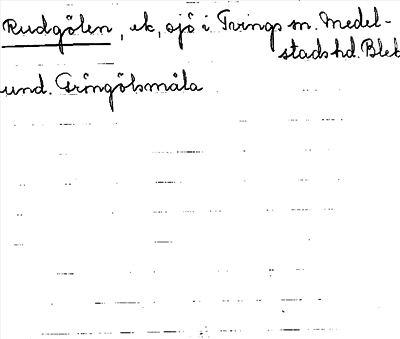 Rudgölen, ek, sjö i Tvings sn. Medel-
stads hd. Blek
und. Gröngölsmåla